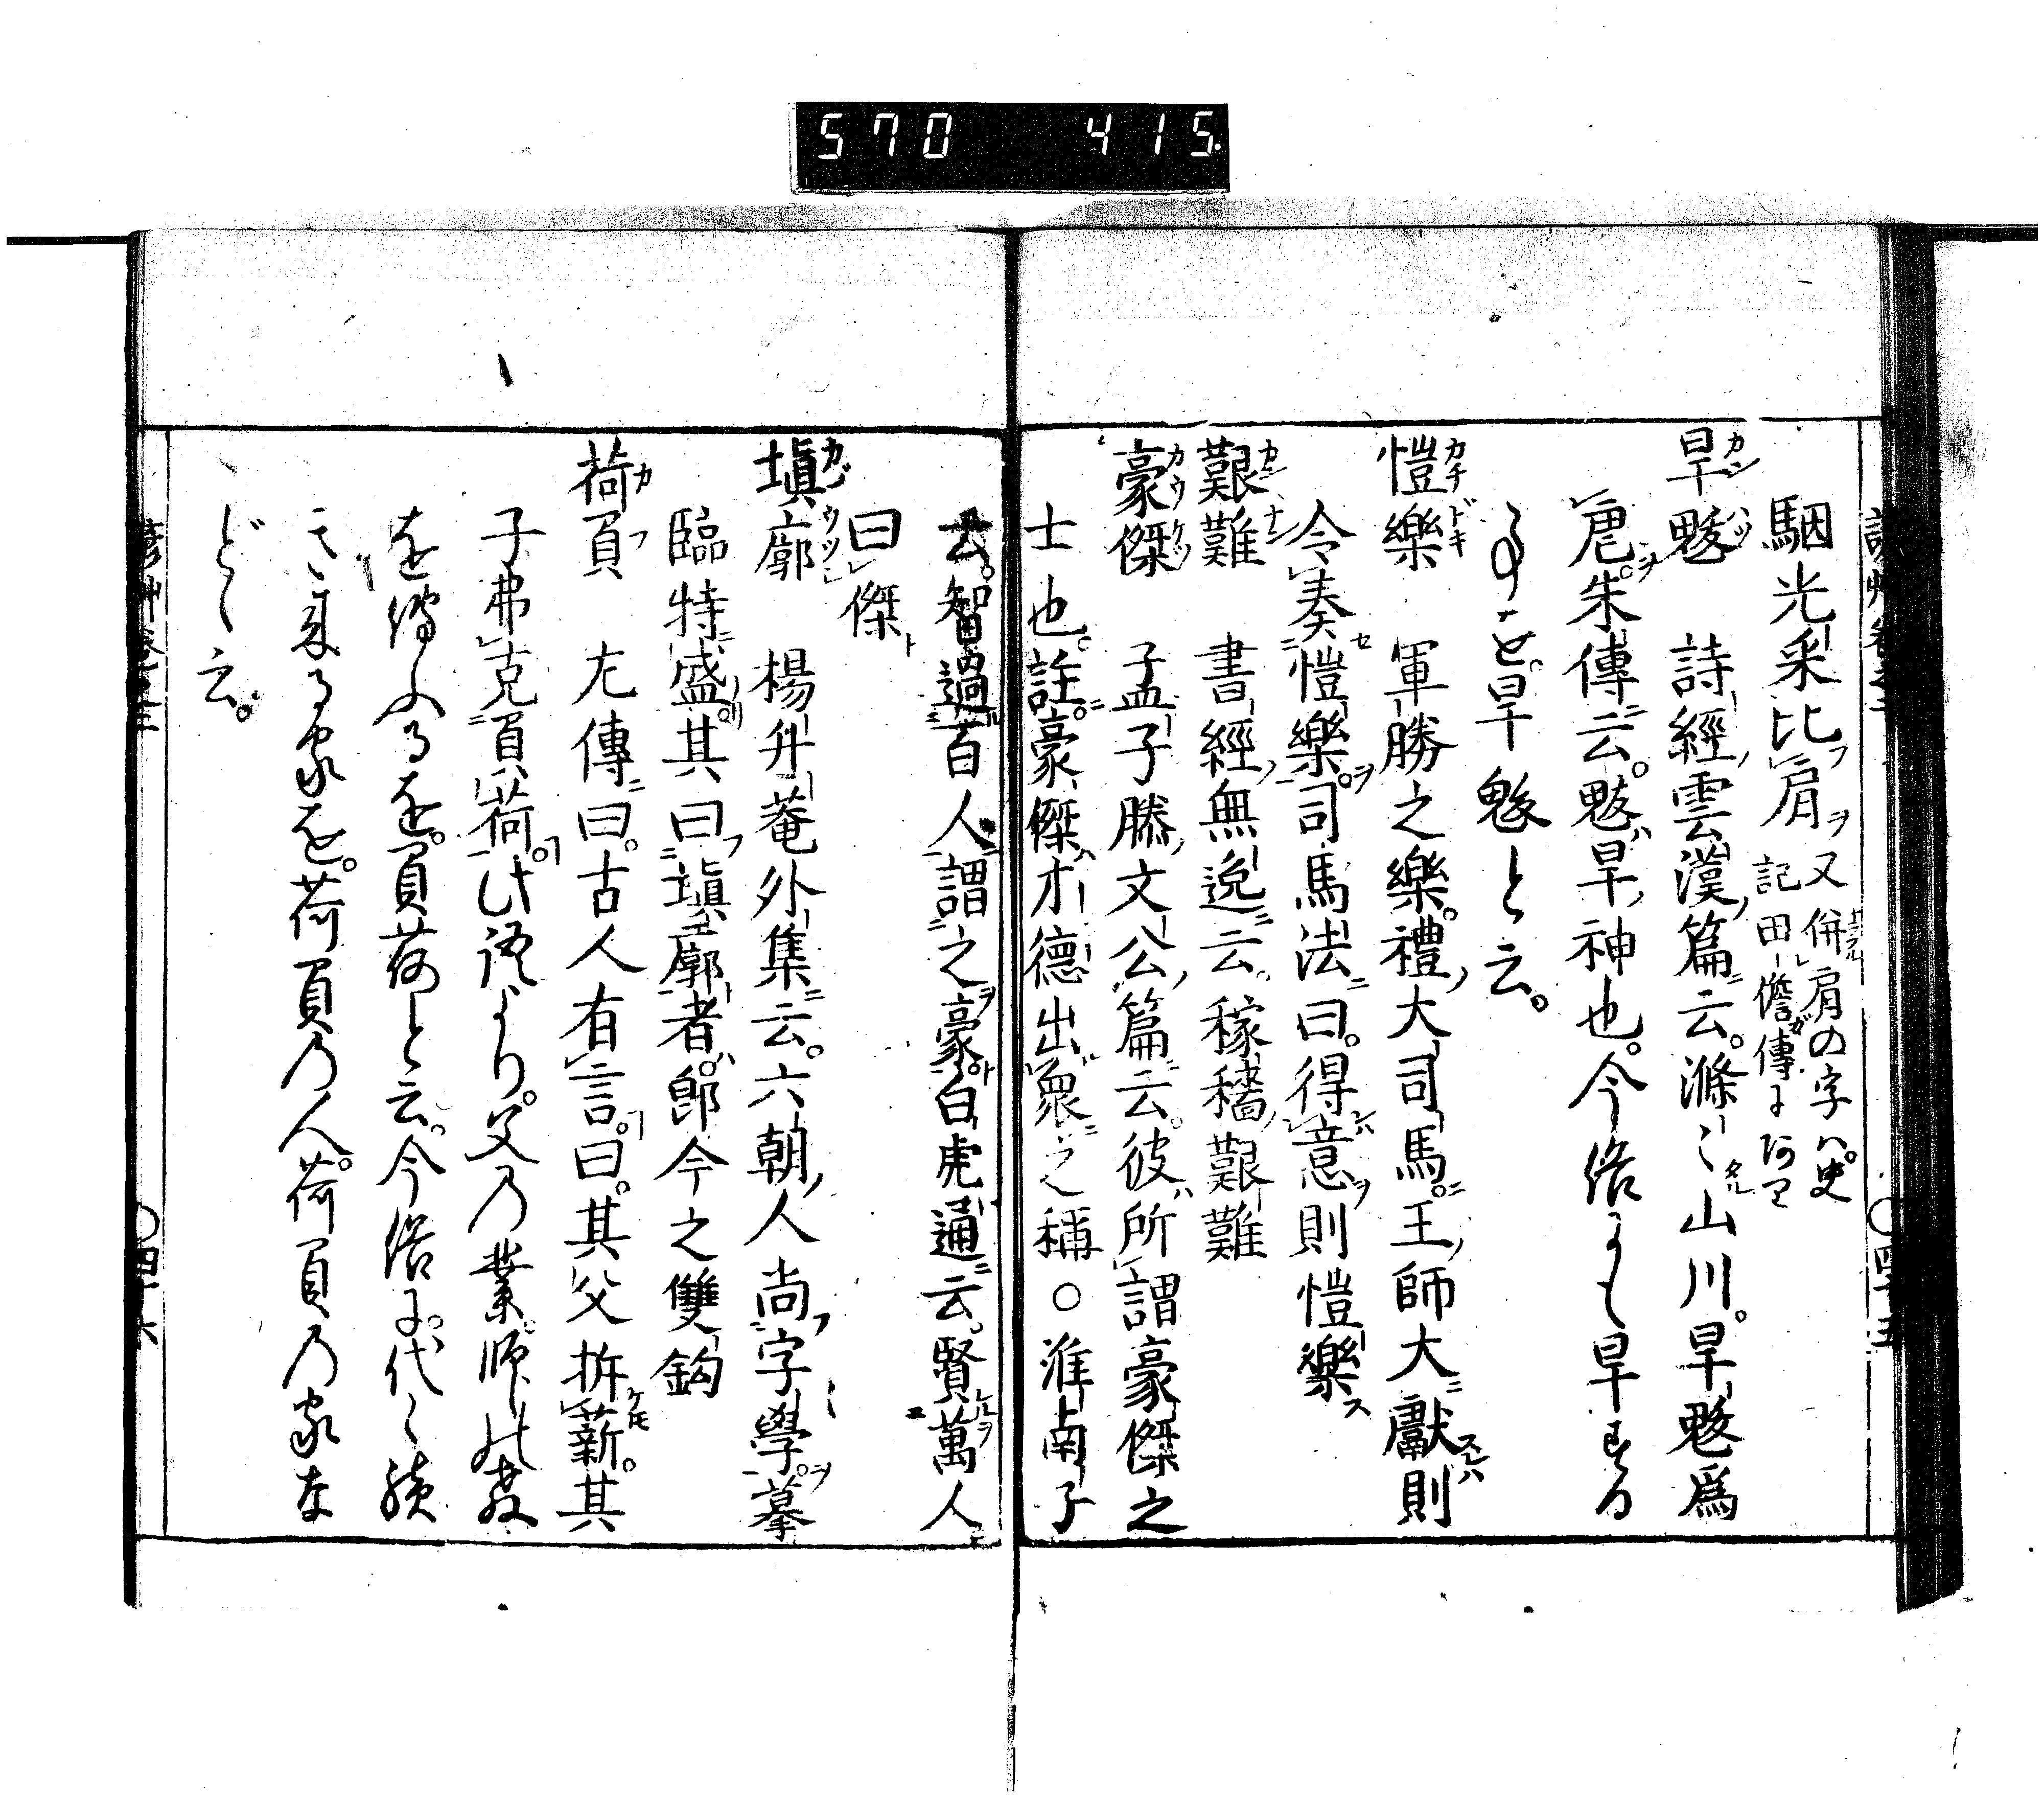 570 415.
駰光采比肩ヲ又併肩の字ハ史
記田儋ガ傳にあり
旱魃 詩經雲漢篇ニ云。滌〻タル山川。旱魃爲
虐ヲ。朱傳ニ云。魃ハ旱神也。今俗にも旱する
ことを。旱魃と云。
愷樂 軍勝之樂。禮大司馬ニ。王師大ニ獻スレハ則
令奏セ愷樂ヲ。司馬法ニ曰。得意ヲ則愷樂ス
艱難 書經無逸ニ云。稼穡艱難
豪傑 孟子滕文公篇ニ云。彼ハ所謂豪傑之
士也。註ニ。豪傑ハ才德出衆ニ之稱○淮南子
云。智過百人ニ謂之ヲ豪ト。白虎通ニ云。賢萬人
曰傑ト
塡廓 楊升菴外集ニ云。六朝人尚字學ヲ。摹
臨特ニ盛ナリ。其曰塡廓ト者ハ。郎今之雙鈎
荷負 左傳ニ曰。古人有言。曰。其父拆薪。其
子弗克負荷。此語より。父の業。
を。負荷と云。今俗に。代〻
家を。荷負の人。荷負の家な
どゝ云。